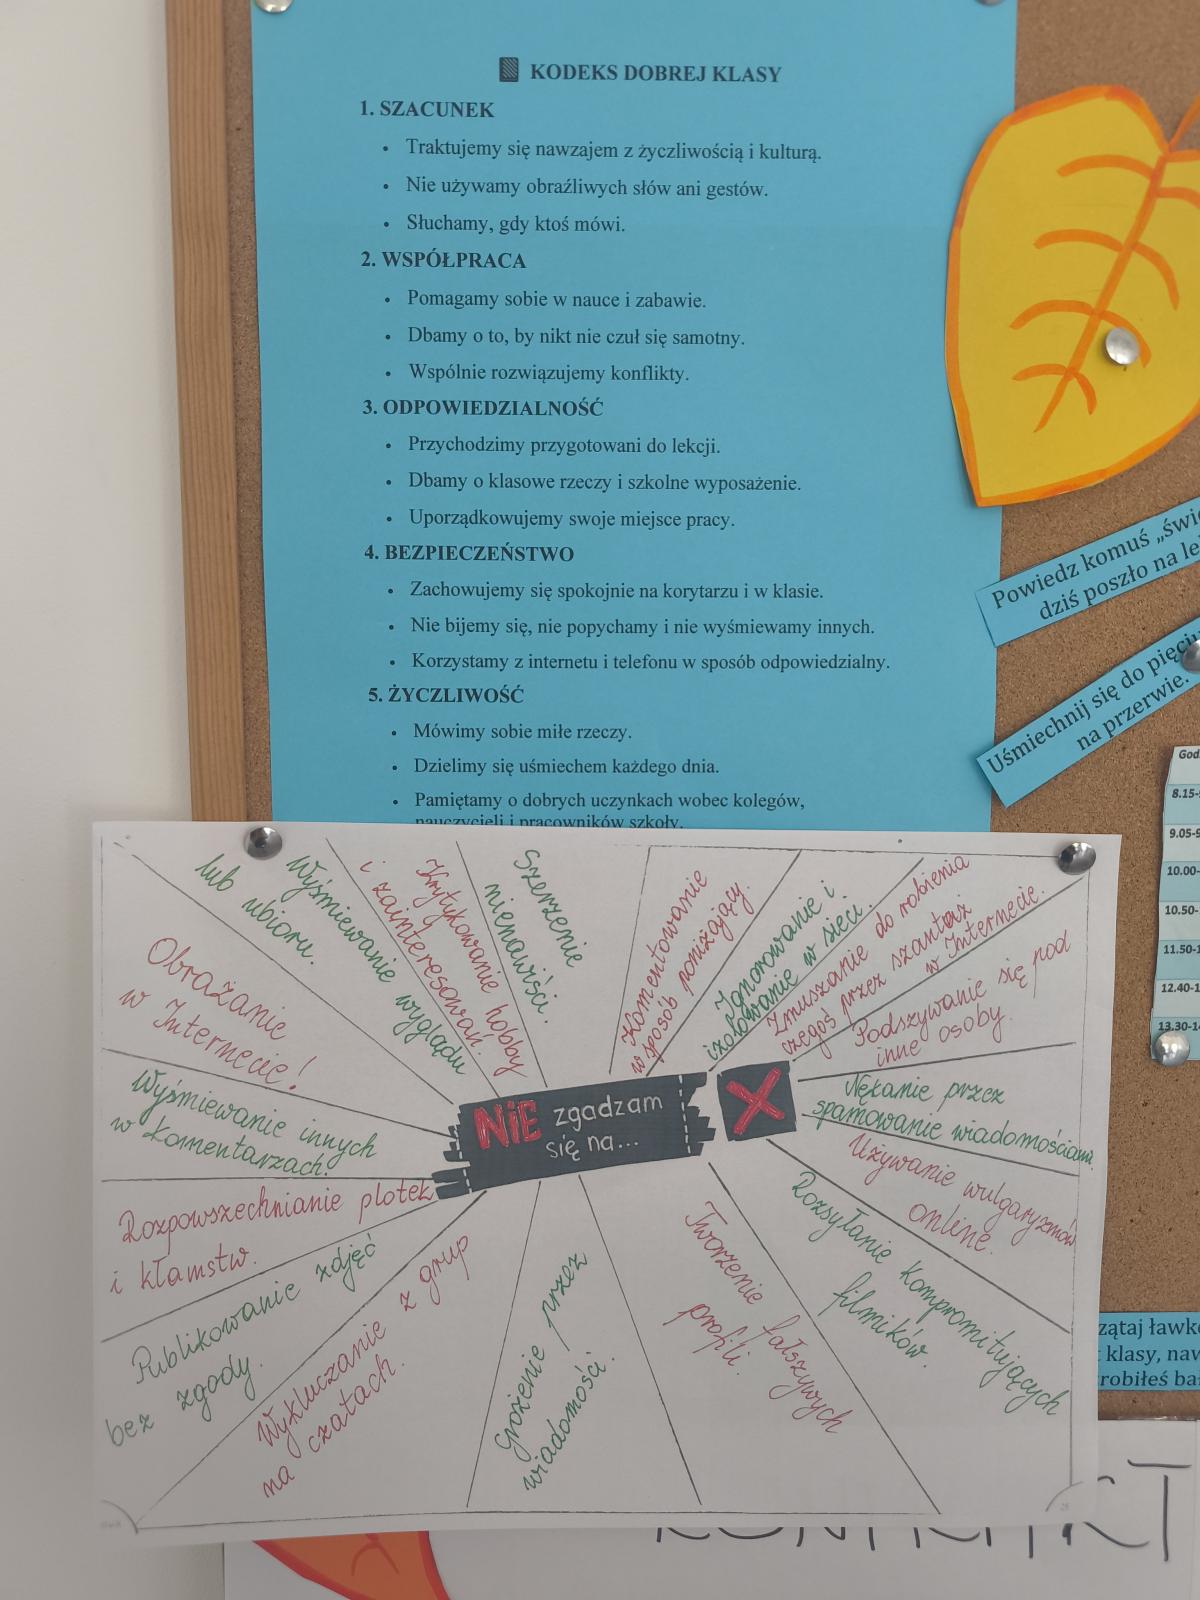 KODEKS DOBREJ KLASY
1. SZACUNEK
• Traktujemy się nawzajem z życzliwością i kulturą.
• Nie używamy obraźliwych słów ani gestów.
• Słuchamy, gdy ktoś mówi.
2. WSPÓŁPRACA
• Pomagamy sobie w nauce i zabawie.
• Dbamy o to, by nikt nie czuł się samotny.
• Wspólnie rozwiązujemy konflikty.
3. ODPOWIEDZIALNOŚĆ
• Przychodzimy przygotowani do lekcji.
• Dbamy o klasowe rzeczy i szkolne wyposażenie.
• Uporządkowujemy swoje miejsce pracy.
4. BEZPIECZEŃSTWO
• Zachowujemy się spokojnie na korytarzu i w klasie.
• Nie bijemy się, nie popychamy i nie wyśmiewamy innych.
• Korzystamy z internetu i telefonu w sposób odpowiedzialny.
5. ŻYCZLIWOŚĆ
• Mówimy sobie miłe rzeczy.
• Dzielimy się uśmiechem każdego dnia.
• Pamiętamy o dobrych uczynkach wobec kolegów,
nauczycieli i pracowników szkoły.
Powiedz komuś „świe
dziś poszło na le
Uśmiechnij się do pięciu
na przerwie.
God
8.15-
9.05-9
10.00-
10.50-
11.50-1
12.40-1
13.30-14
NIE zgadzam
się na...
Obrażanie
w Internecie!
Wyśmiewanie wyglądu
lub ubioru.
Krytykowanie hobby
i zainteresowań.
Szerzenie
nienawiści.
Komentowanie
w sposób poniżający.
Ignorowanie i
izolowanie w sieci.
Zmuszanie do robienia
czegoś przez szantaż
w Internecie.
Podszywanie się pod
inne osoby.
Nękanie przez
spamowanie wiadomościami.
Używanie wulgaryzmów
online.
Rozsyłanie kompromitujących
filmików.
Tworzenie fałszywych
profili.
Grożenie przez
wiadomości.
Wykluczanie z grup
na czatach.
Publikowanie zdjęć
bez zgody.
Rozpowszechnianie plotek
i kłamstw.
Wyśmiewanie innych
w komentarzach.
zątaj ławkę
t klasy, naw
robiłeś bał
KONTRAKT